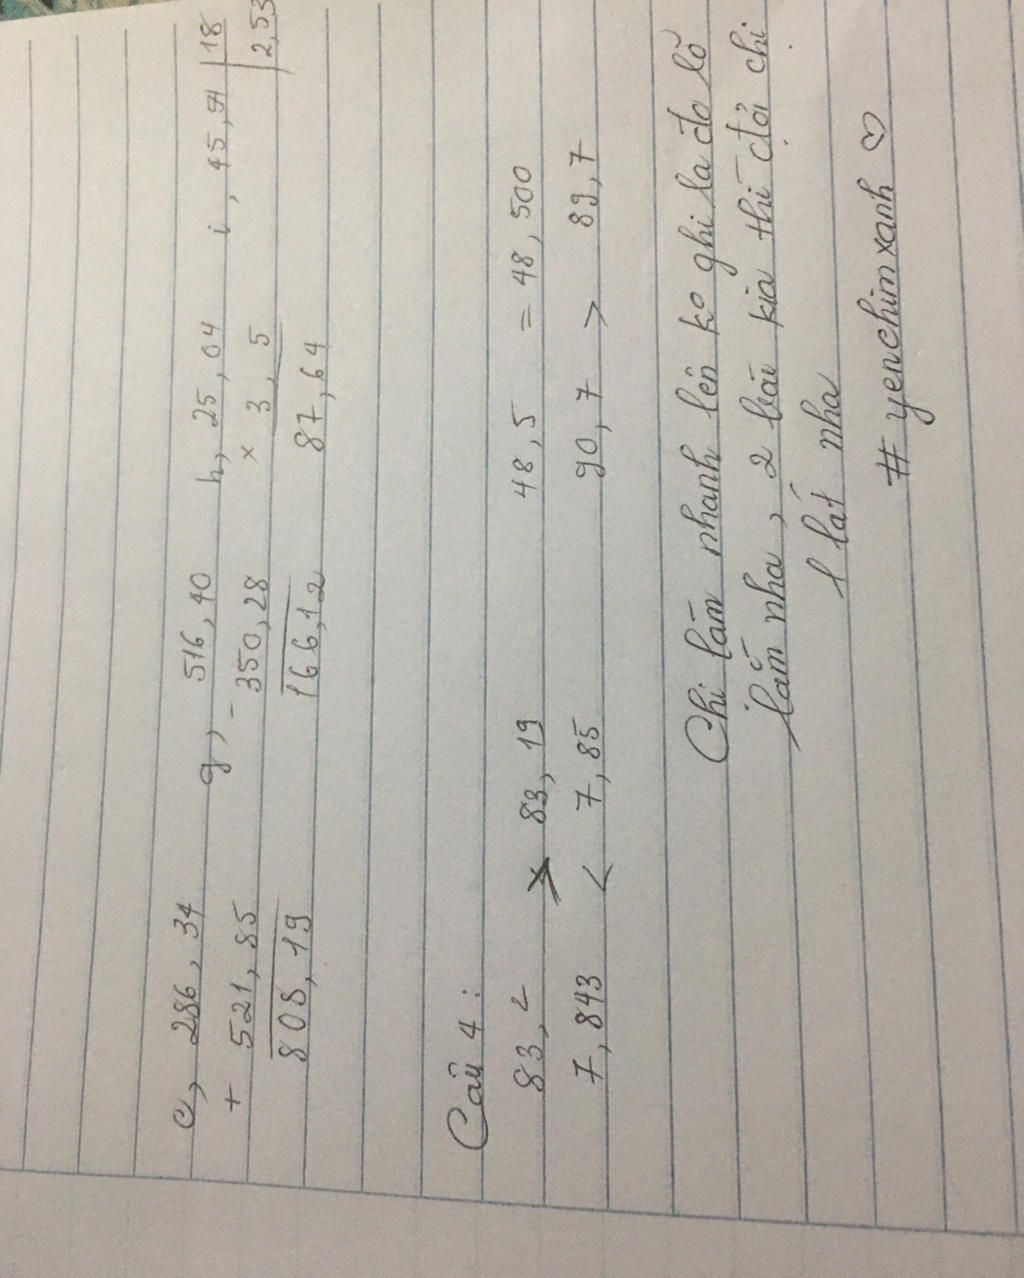 e, 286,34 g, 516,40 h, 25,04 i, 45,54 | 18
+ 521,85 - 350,28 × 3,5 2,53
808,19 166,12 87,64
Câu 4:
83,2 > 83,19 48,5 = 48,500
7,843 < 7,85 90,7 > 89,7
Chị làm nhanh lên ko ghi la đo lố
lắm nha, 2 bài kia thì đợi chị
1 lát nha
# yenchimxanh ♡